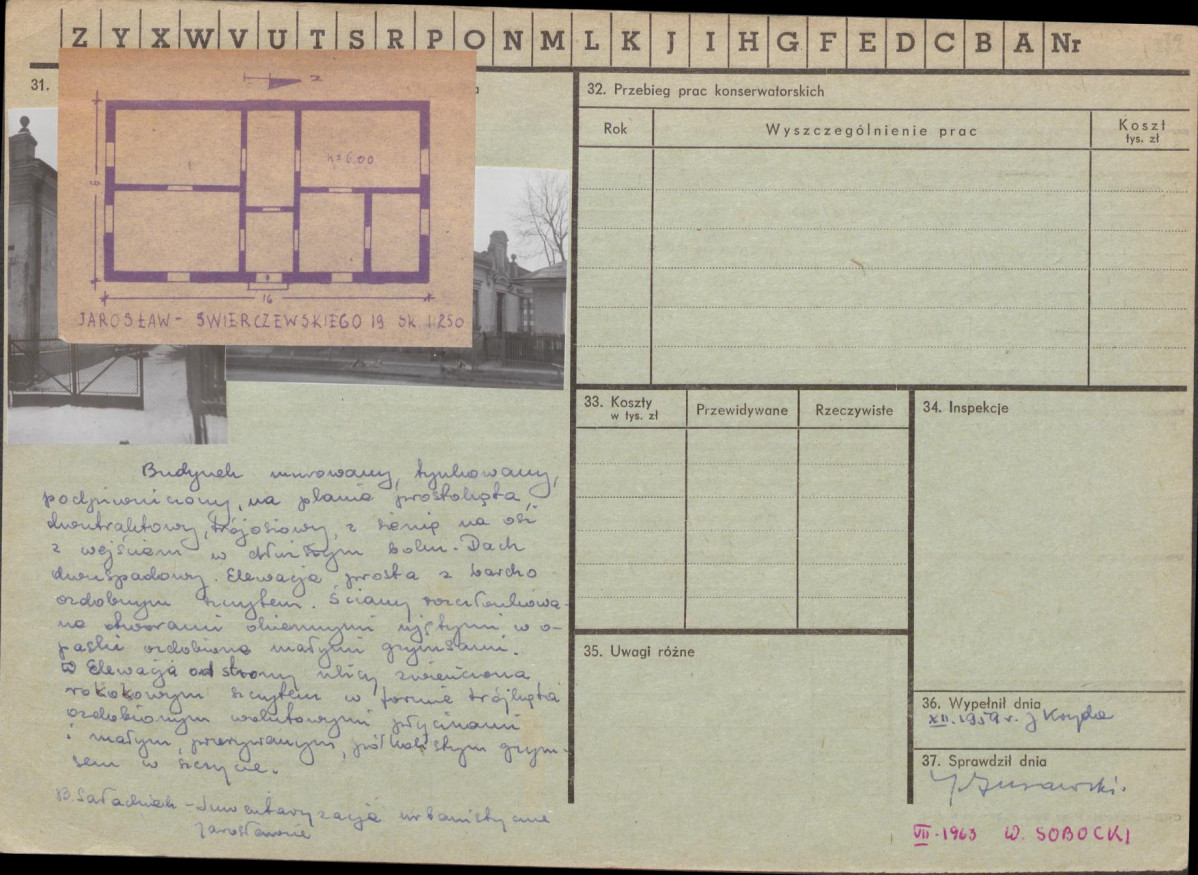 Z Y X W V U T S R P O N M L K J I H G F E D C B A Nr
31.
z
h=6.00
8
16
JAROSŁAW - ŚWIERCZEWSKIEGO 19 SK. 1:250
Budynek murowany, tynkowany,
podpiwniczony, na planie prostokąta,
dwutraktowy, trójosiowy, z sienią na osi
z wejściem w dłuższym boku. Dach
dwuspadowy. Elewacja prosta z bardzo
ozdobnym szczytem. Ściany rozczłonkowa-
ne otworami okiennymi ujętymi w o-
paski ozdobione małymi gzymsami.
Elewacja od strony ulicy zwieńczona
rokokowym szczytem w formie trójkąta
ozdobionym wolutowymi płycinami
i małym, przerywanym, półkolistym gzym-
sem w szczycie.
Inwentaryzacja urbanistyczna
Jarosławia
32. Przebieg prac konserwatorskich
Rok
Wyszczególnienie prac
Koszt
tys. zł
33. Koszty
w tys. zł
Przewidywane
Rzeczywiste
34. Inspekcje
35. Uwagi różne
36. Wypełnił dnia
XII. 1959 r. J Kryda
37. Sprawdził dnia
VII-1963 W. SOBOCKI